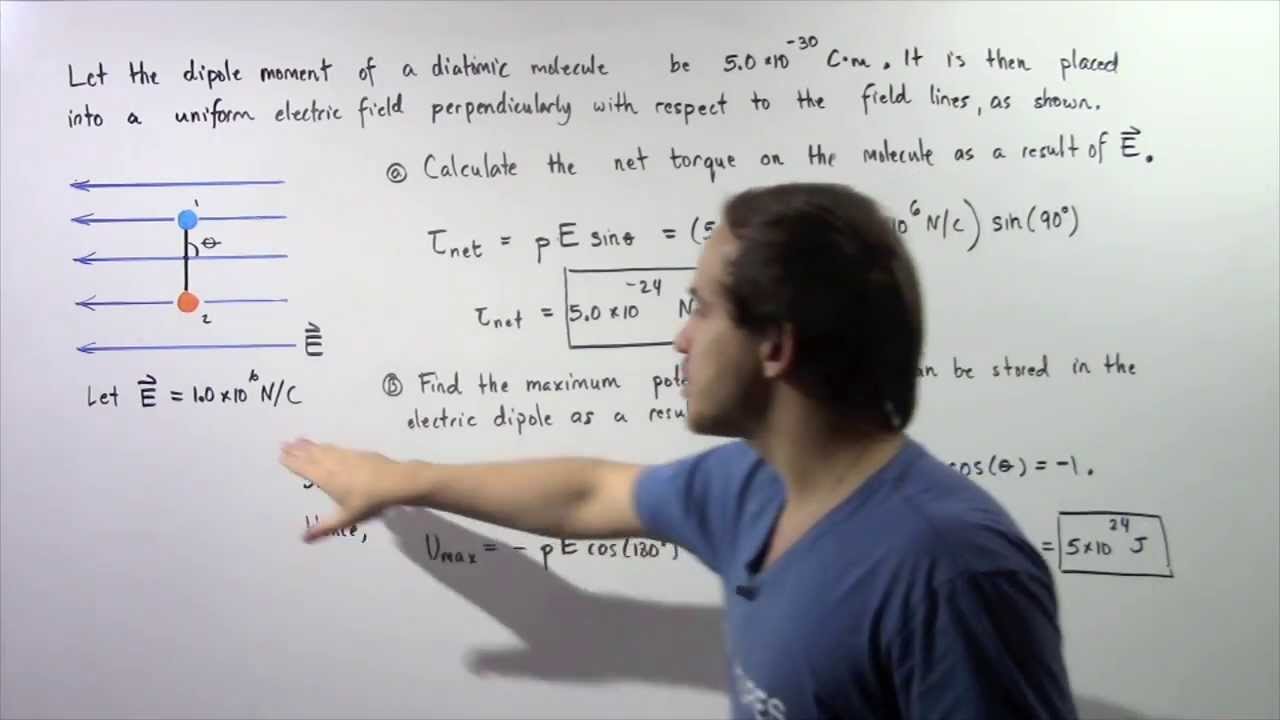 Let the dipole moment of a diatomic molecule be 5.0 × 10⁻³⁰ C·m. It is then placed
into a uniform electric field perpendicularly with respect to the field lines, as shown.
ⓐ Calculate the net torque on the molecule as a result of E⃗.
1
θ
2
E⃗
Let E⃗ = 1.0 × 10⁶ N/C
τnet = pE sinθ = (5 0⁶ N/C) sin(90°)
τnet = 5.0 × 10⁻²⁴ N
Ⓑ Find the maximum an be stored in the
electric dipole as a
cos(θ) = -1.
Umax = - pE cos(180°) = 5×10²⁴ J